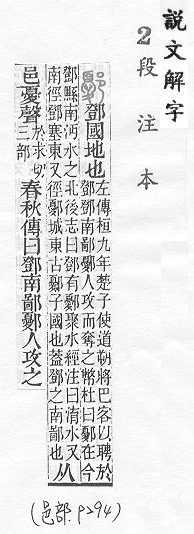 說文解字
2段注本
鄧國地也
左傳桓九年楚子使道朔將巴客以聘於
鄧鄧南鄙鄾人攻而奪之幣杜曰鄾在今
鄧縣南沔水之北後志曰鄧有鄾聚水經注曰淯水又
南徑鄧塞東又徑鄾城東古鄾子國也蓋鄧之南鄙也
从
邑憂聲
於求切
三部
春秋傳曰鄧南鄙鄾人攻之
(邑部.P294)